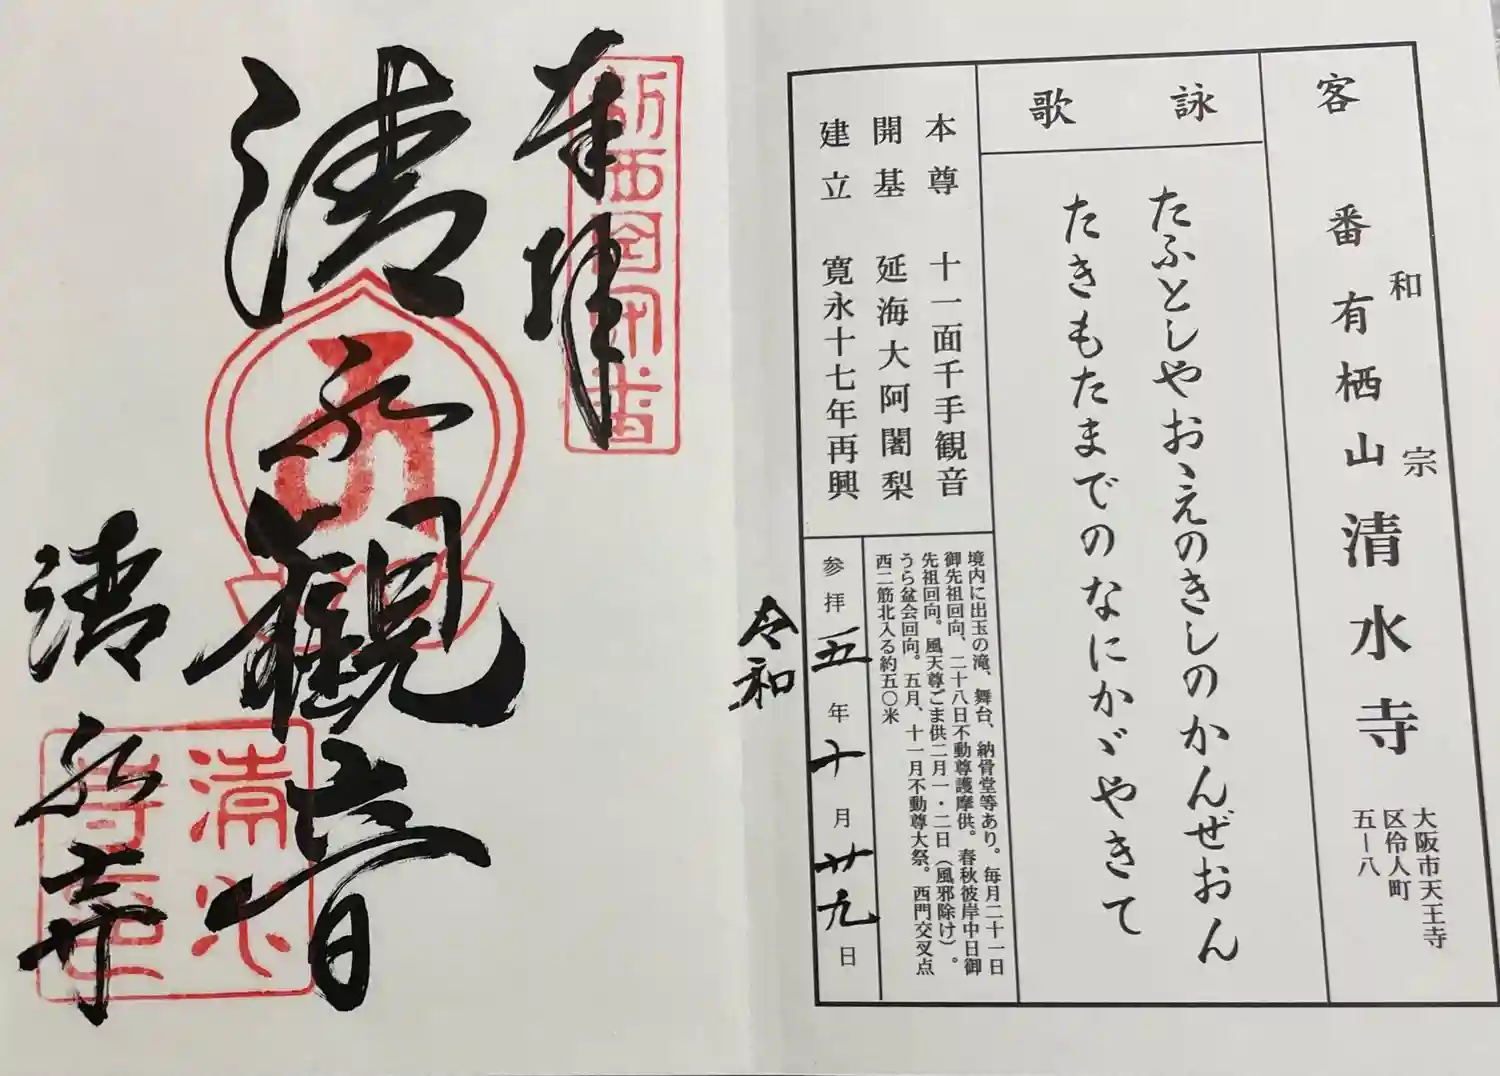 客番 有栖山 清水寺
和宗
大阪市天王寺
区伶人町
五ー八
詠歌
たふとしやおゝえのきしのかんぜおん
たきもたまでのなにかゞやきて
本尊 十一面千手観音
開基 延海大阿闍梨
建立 寛永十七年再興
境内に出玉の滝、舞台、納骨堂等あり。毎月二十一日
御先祖回向、二十八日不動尊護摩供。春秋彼岸中日御
先祖回向。風天尊ごま供二月一・二日（風邪除け）。
うら盆会回向。五月、十一月不動尊大祭。西門交叉点
西二筋北入る約五〇米
参拝五年十月廿九日
令和
奉拝
清水観音
清水寺